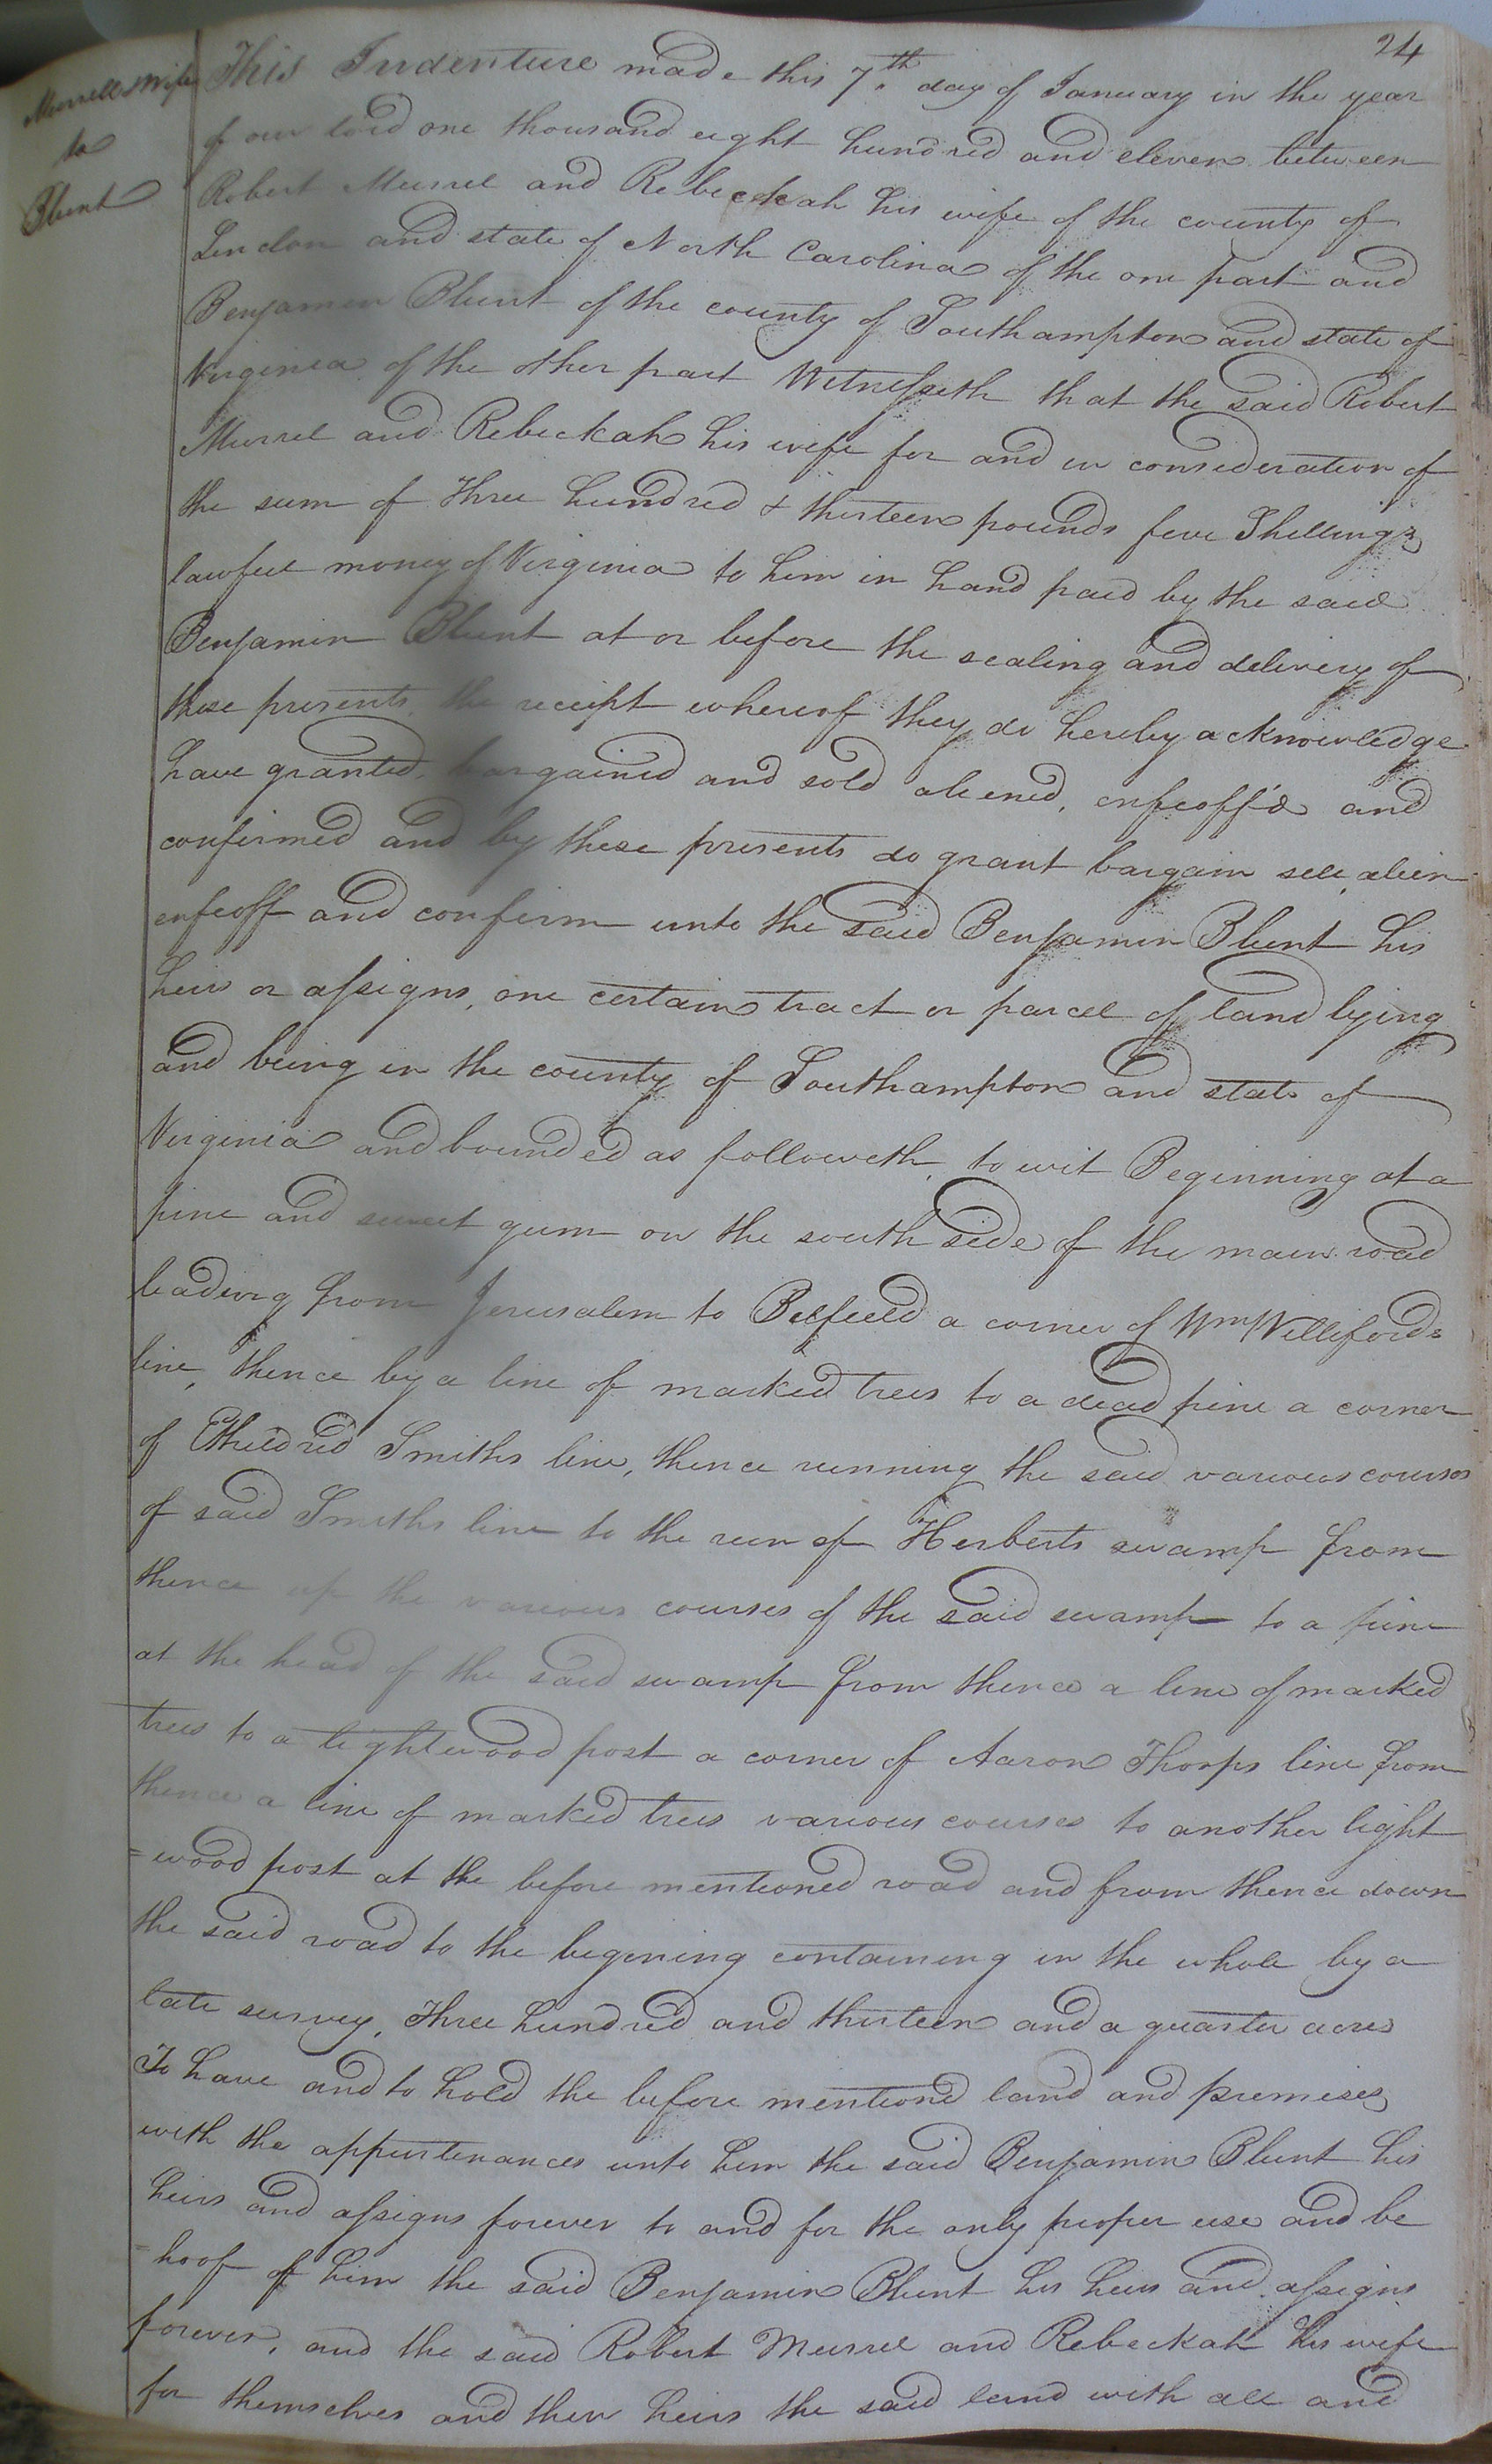 24
Murrell & Wife
to
Blunt
This Indenture made this 7th day of January in the year
of our lord one thousand eight hundred and eleven between
Robert Murrel and Rebeckah his wife of the county of
and state of North Carolina of the one part and
Benjamin Blunt of the county of Southampton and state of
Virginia of the other part Witnesseth that the said Robert
Murrel and Rebeckah his wife for and in consideration of
the sum of Three hundred & thirteen pounds five Shillings
lawful money of Virginia to him in hand paid by the said
Benjamin Blunt at or before the sealing and delivery of
these presents, the receipt whereof they do hereby acknowledge
have granted, bargained and sold aliened, enfeoff'd and
confirmed and by these presents do grant bargain sell, alien
enfeoff and confirm unto the said Benjamin Blunt his
heirs or assigns, one certain tract or parcel of land lying
and being in the county of Southampton and state of
Virginia and bounded as followeth, to wit Beginning at a
pine and sweet gum on the south side of the main road
leading from Jerusalem to Belfield a corner of Wm Willifords
line, thence by a line of marked trees to a dead pine a corner
of Etheldred Smiths line, thence running the said various courses
of said Smiths line to the run of Herberts swamp from
thence up the various courses of the said swamp to a pine
at the head of the said swamp from thence a line of marked
trees to a lightwood post a corner of Aaron Thorps line from
thence a line of marked trees various courses to another light
=wood post at the before mentioned road and from thence down
the said road to the begining containing in the whole by a
late survey, Three hundred and thirteen and a quarter acres
To have and to hold the before mentiond land and premises
with the appurtenances unto him the said Benjamin Blunt his
heirs and assigns forever to and for the only proper use and be
=hoof of him the said Benjamin Blunt his heirs and assigns
forever, and the said Robert Murrel and Rebeckah his wife
for themselves and their heirs the said land with all and